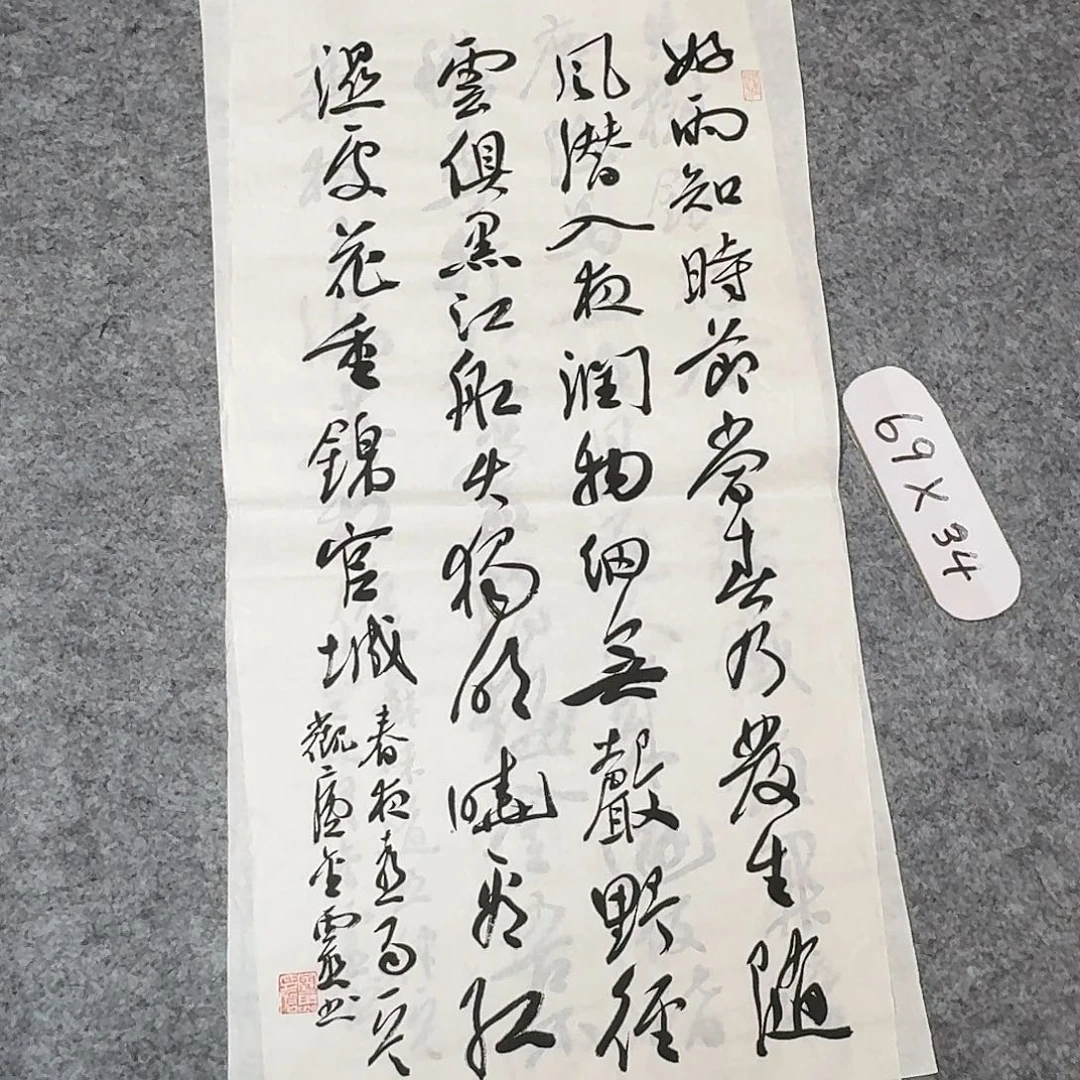 好雨知時節當春乃發生隨
風潜入夜潤物細無聲野徑
雲俱黑江船火獨明曉看紅
濕處花重錦官城
春夜喜雨一首
觀書
69X34